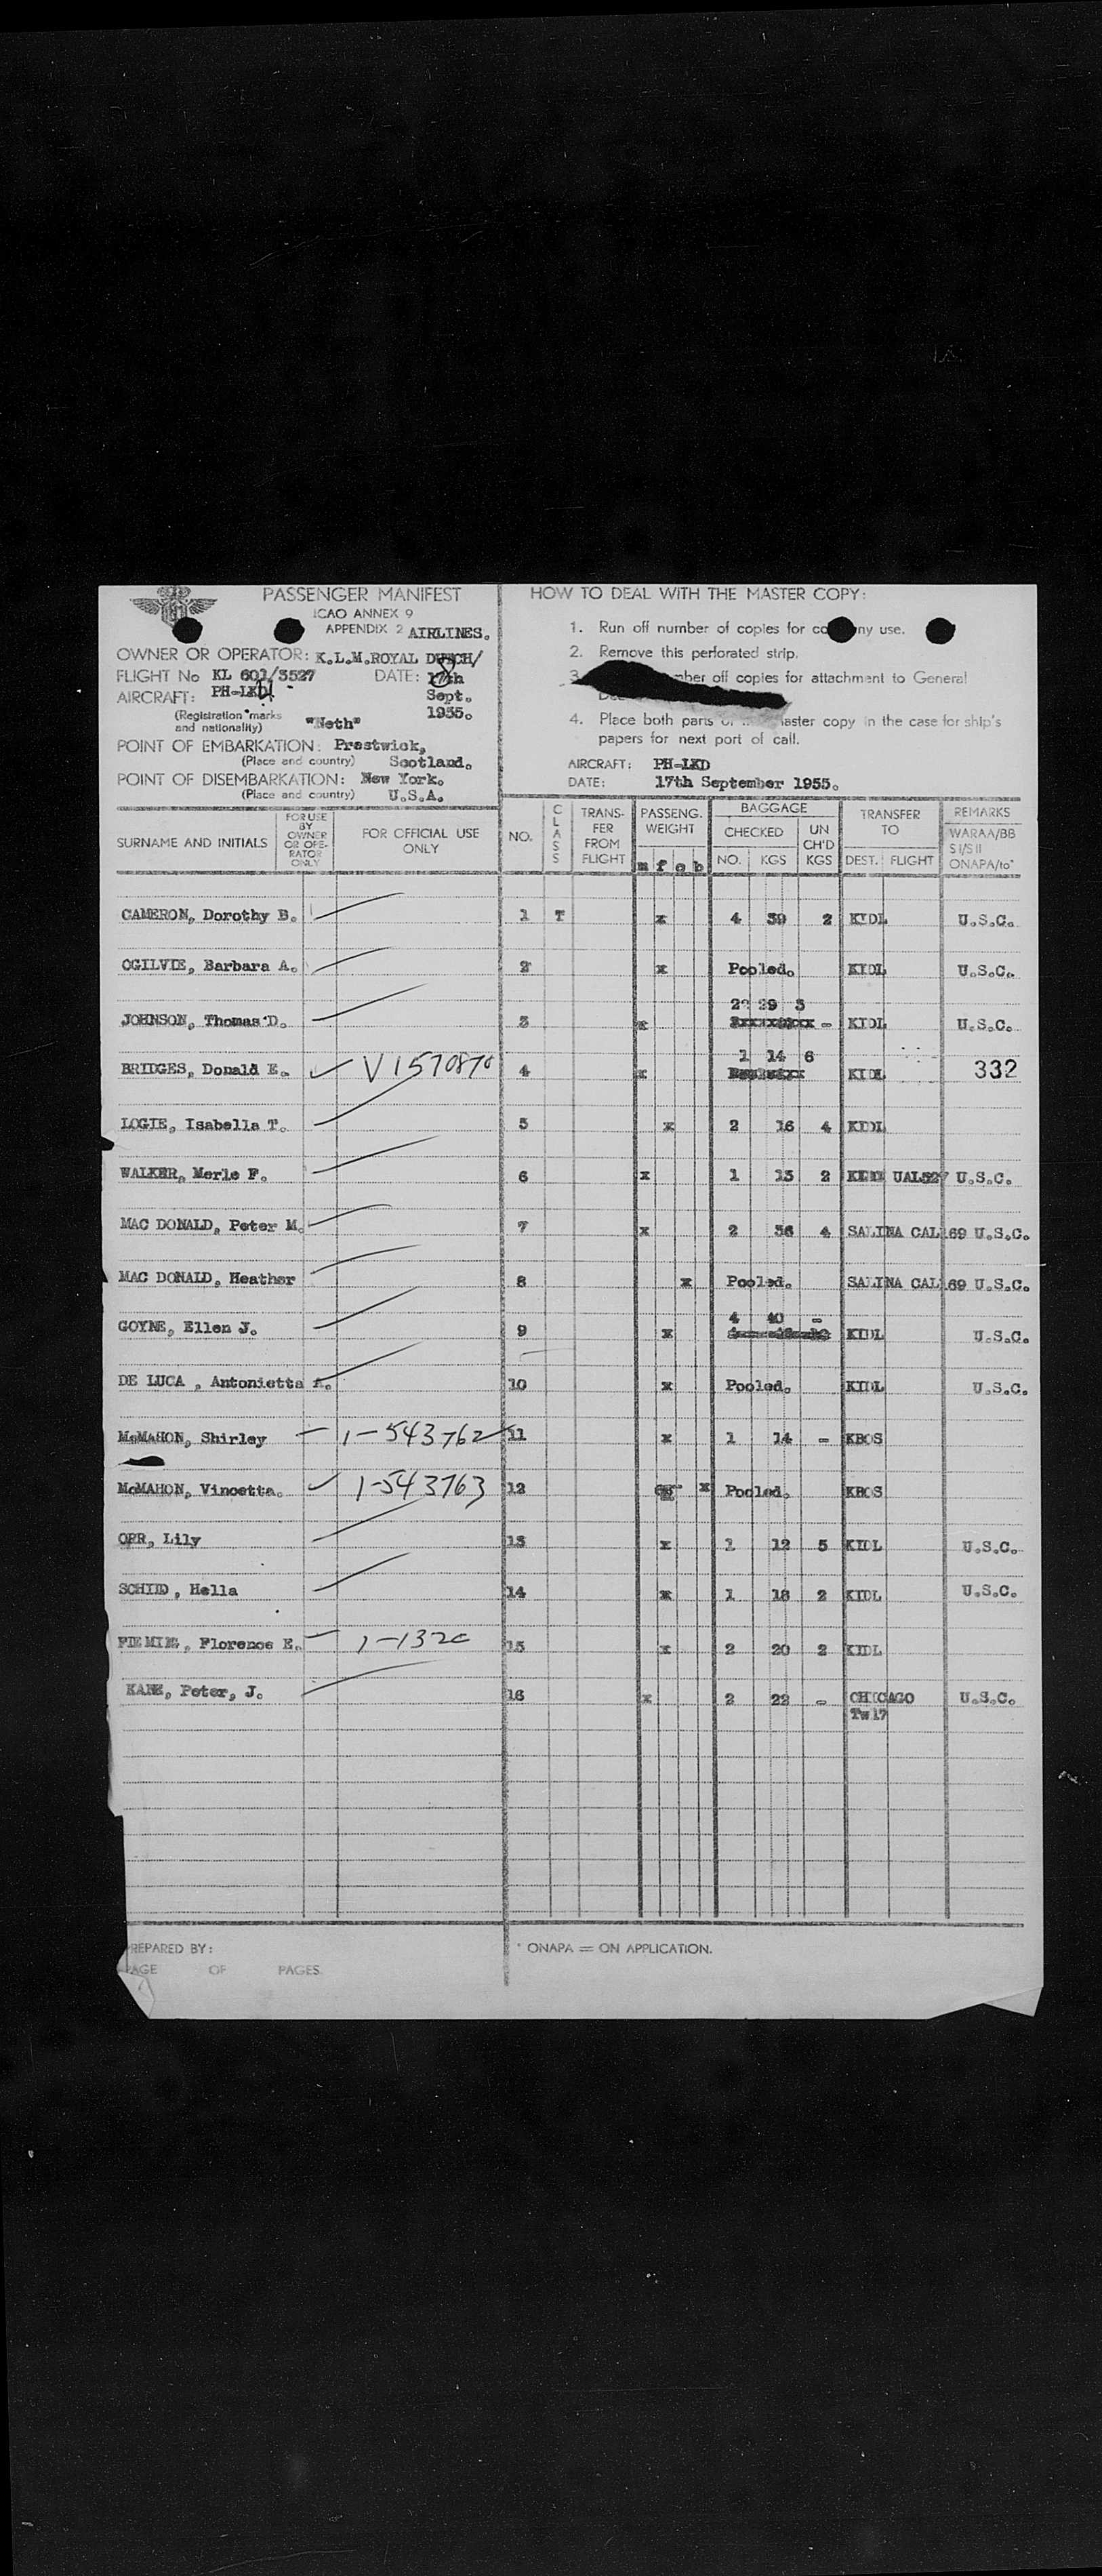 PASSENGER MANIFEST
ICAO ANNEX 9
APPENDIX 2 AIRLINES.
OWNER OR OPERATOR: K.L.M. ROYAL DUTCH/
FLIGHT No KL 601/3527 DATE: 17th 8
AIRCRAFT: PH-LKD Sept.
(Registration marks and nationality) "Neth" 1955.
POINT OF EMBARKATION: Prestwick,
(Place and country) Scotland.
POINT OF DISEMBARKATION: New York.
(Place and country) U.S.A.
HOW TO DEAL WITH THE MASTER COPY:
1. Run off number of copies for use.
2. Remove this perforated strip.
3. off copies for attachment to General
4. Place both parts copy in the case for ship's
papers for next port of call.
AIRCRAFT: PH-LKD
DATE: 17th September 1955.
SURNAME AND INITIALS
FOR USE BY OWNER OR OPERATOR ONLY
FOR OFFICIAL USE ONLY
NO.
CLASS
TRANSFER FROM FLIGHT
PASSENG. WEIGHT
m f c b
BAGGAGE
CHECKED
NO. KGS
UN CH'D KGS
TRANSFER TO
DEST. FLIGHT
REMARKS
WARAA/BB
SI/SII
ONAPA/to*
CAMERON, Dorothy B. 1 T x 4 39 2 KIDL U.S.C.
OGILVIE, Barbara A. 2 x Pooled. KIDL U.S.C.
JOHNSON, Thomas D. 3 x 29 3 - KIDL U.S.C.
BRIDGES, Donald E. V1570870 4 x 1 14 6 KIDL 332
LOGIE, Isabella T. 5 x 2 16 4 KIDL
WALKER, Merle F. 6 x 1 15 2 UAL527 U.S.C.
MAC DONALD, Peter M. 7 x 2 36 4 SALINA CAL169 U.S.C.
MAC DONALD, Heather 8 x Pooled. SALINA CAL169 U.S.C.
GOYNE, Ellen J. 9 x 4 40 - KIDL U.S.C.
DE LUCA, Antonietta A. 10 x Pooled. KIDL U.S.C.
McMAHON, Shirley 1-543762 11 x 1 14 - KBOS
McMAHON, Vincetta. 1-543763 12 x Pooled. KBOS
ORR, Lily 13 x 1 12 5 KIDL U.S.C.
SCHIID, Hella 14 x 1 18 2 KIDL U.S.C.
FLEMING, Florence E. 15 x 2 20 2 KIDL
KANE, Peter, J. 16 x 2 22 - CHICAGO U.S.C.
Tw17
PREPARED BY:
PAGE OF PAGES
* ONAPA = ON APPLICATION.